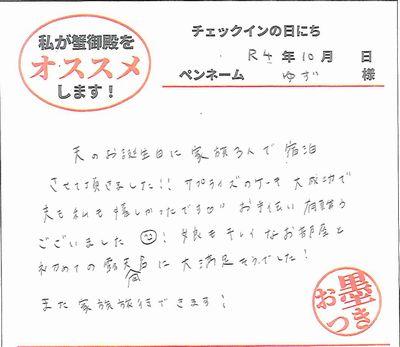 私が蟹御殿を
オススメ
します!
チェックインの日にち
R4年10月 日
ペンネーム ゆず 様
夫のお誕生日に家族3人で宿泊
させて頂きました!! サプライズのケーキ大成功で
夫も私も嬉しかったです♡ お手伝い有難う
ございました☺! 娘もキレイなお部屋と
初めての露天風呂に大満足そうでした!
また家族旅行できます!
墨
おつき